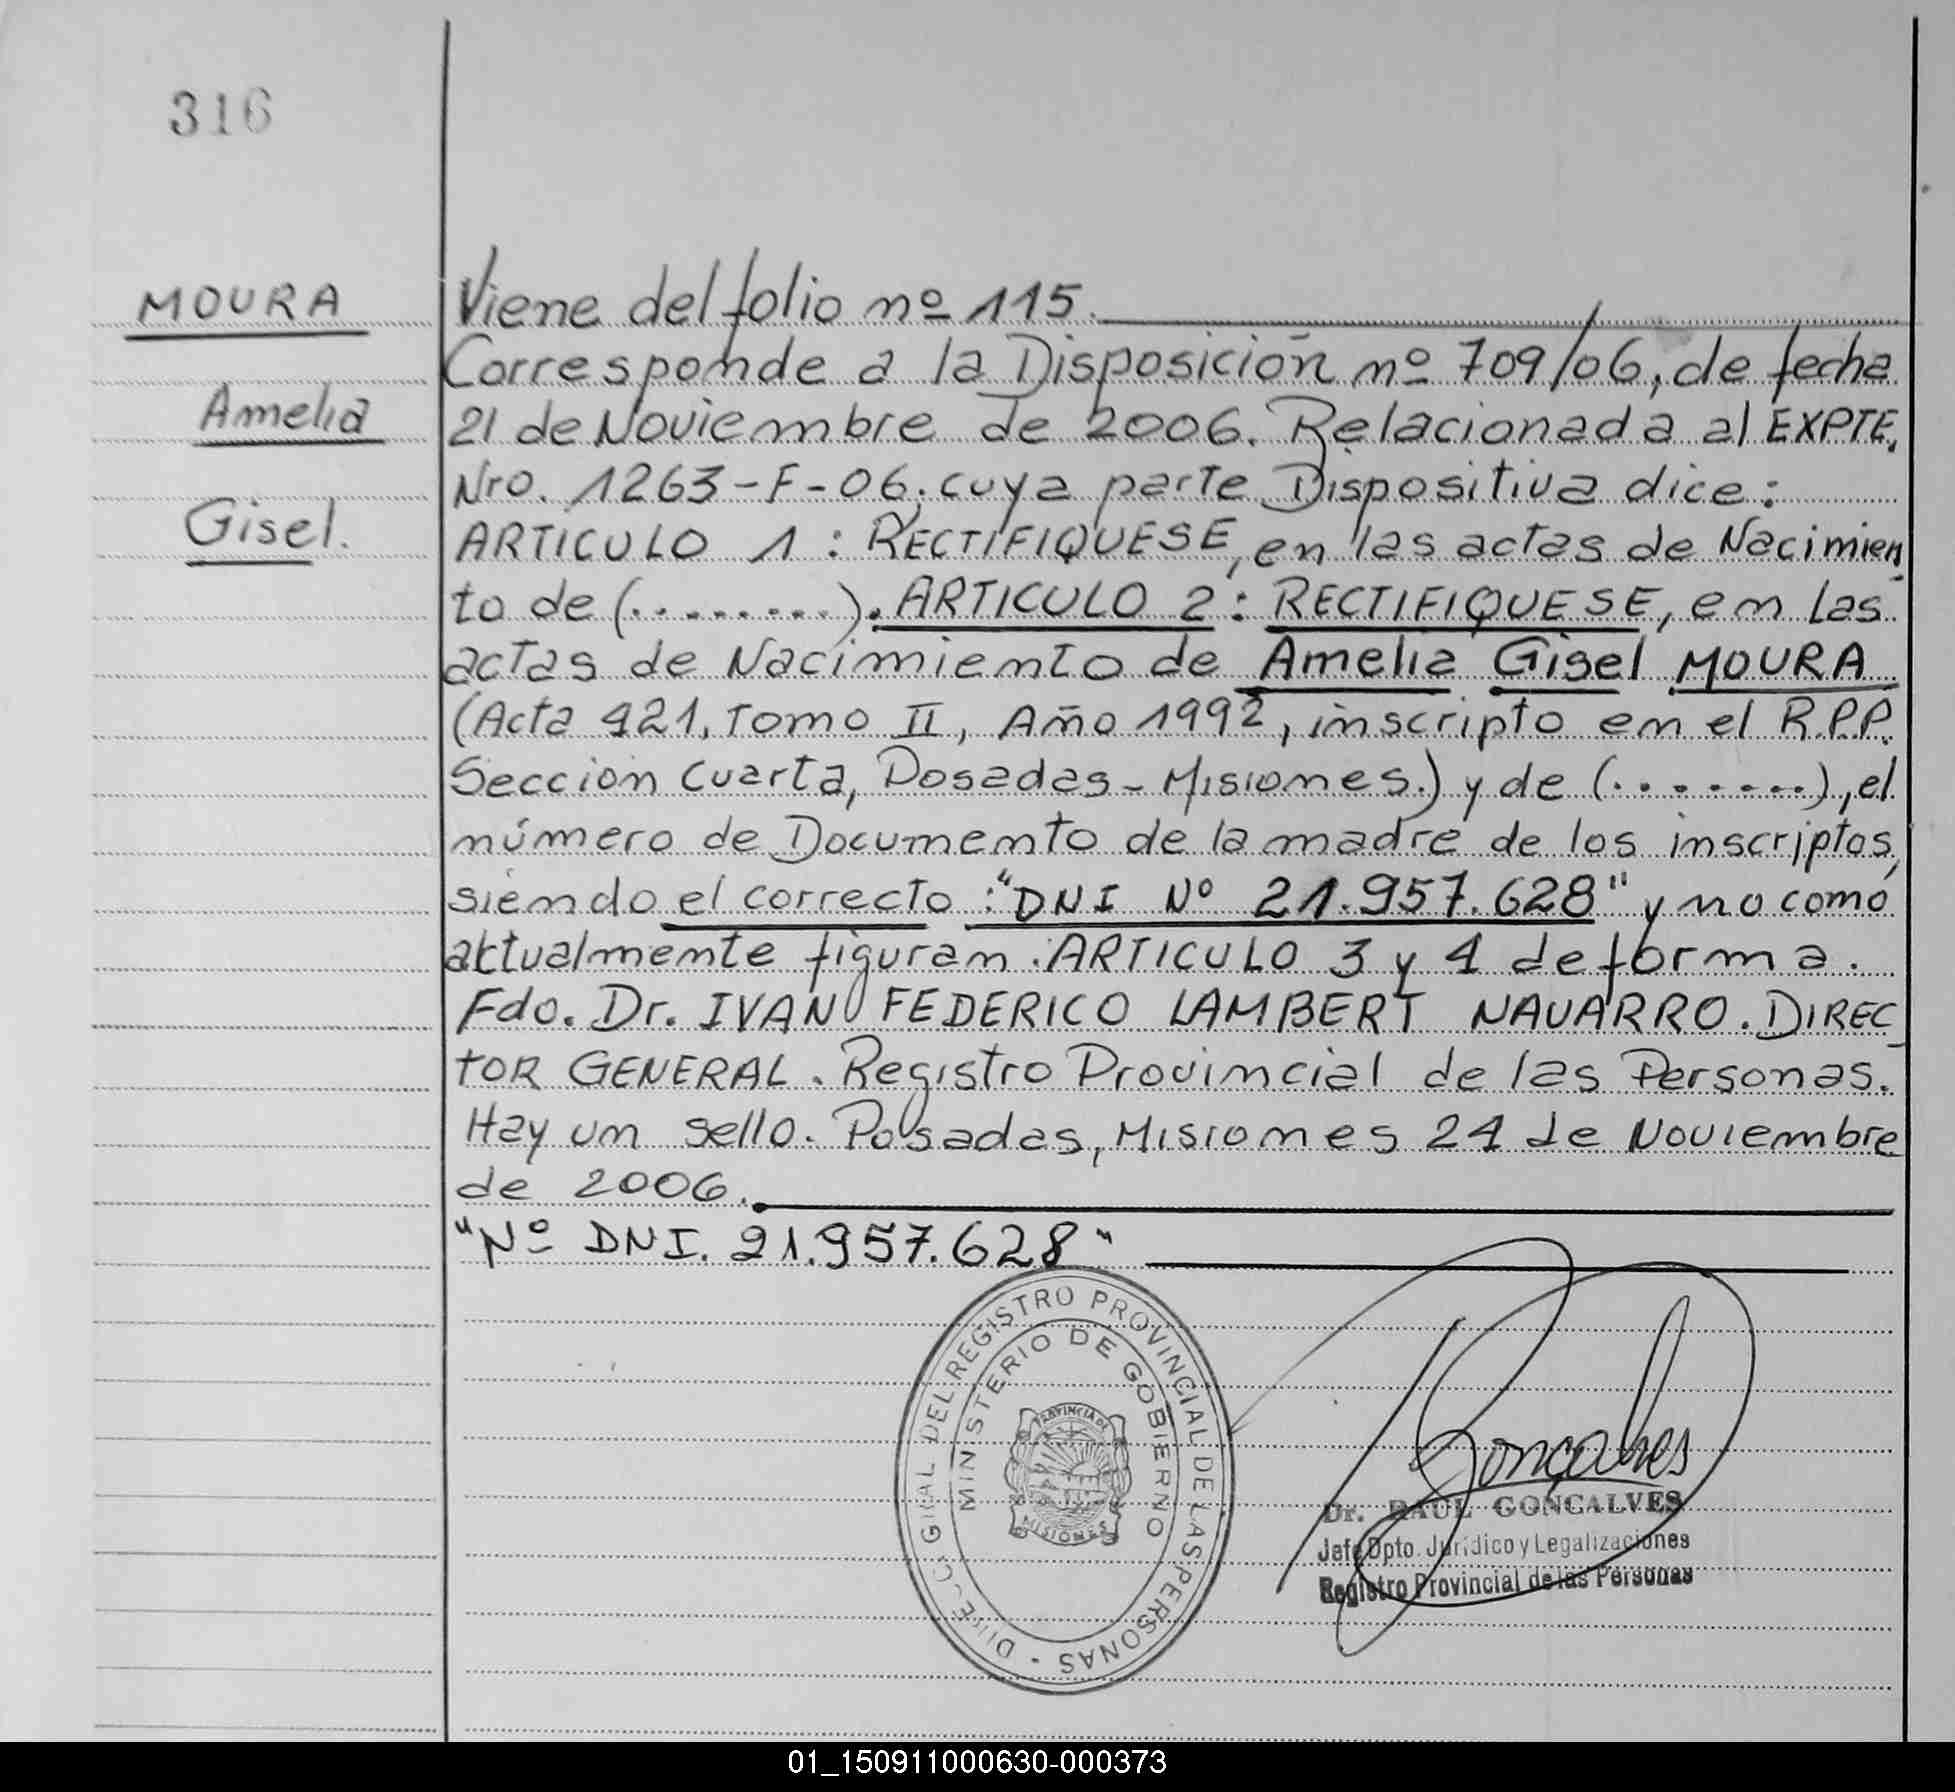 316
MOURA
Amelia
Gisel.
Viene del folio nº 115.
Corresponde a la Disposición nº 709/06, de fecha
21 de Noviembre de 2006. Relacionada al EXPTE.
Nro. 1263-F-06. cuya parte Dispositiva dice:
ARTICULO 1 : RECTIFIQUESE, en las actas de Nacimien
to de (.........). ARTICULO 2 : RECTIFIQUESE, en las
actas de Nacimiento de Amelia Gisel MOURA
(Acta 421, Tomo II, Año 1992, inscripto en el R.P.P.
Sección Cuarta, Posadas - Misiones.) y de (........), el
número de Documento de la madre de los inscriptos,
siendo el correcto : "DNI Nº 21.957.628" y no como
aktualmente figuran. ARTICULO 3 y 4 de forma.
Fdo. Dr. IVAN FEDERICO LAMBERT NAVARRO. DIREC
TOR GENERAL. Registro Provincial de las Personas.
Hay un sello. Posadas, Misiones 24 de Noviembre
de 2006.
"Nº DNI. 21.957.628"
DIRECC. GRAL DEL REGISTRO PROVINCIAL DE LAS PERSONAS -
MINISTERIO DE GOBIERNO
PROVINCIA DE
MISIONES
Gonçalves
Dr. RAUL GONCALVES
Jefe Dpto. Jurídico y Legalizaciones
Registro Provincial de las Personas
01_150911000630-000373